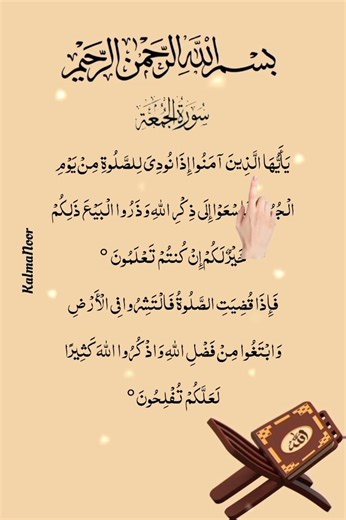 بِسْمِ اللهِ الرَّحْمٰنِ الرَّحِيْمِ
سُوْرَةُ الْجُمُعَة
يَاَيُّهَا الَّذِينَ آمَنُوا إِذَا نُودِىَ لِلصَّلٰوةِ مِنْ يَوْمِ
فَاسْعَوْا إِلَى ذِكْرِ اللهِ وَذَرُوا الْبَيْعَ ذَلِكُمْ
خَيْرٌ لَكُمْ إِنْ كُنتُمْ تَعْلَمُونَ °
فَإِذَا قُضِيَتِ الصَّلٰوةُ فَانْتَشِرُوا فِى الْأَرْضِ
وَابْتَغُوا مِنْ فَضْلِ اللهِ وَاذْكُرُوا اللهَ كَثِيْرًا
لَعَلَّكُمْ تُفْلِحُونَ °
KalmaNoor
الله